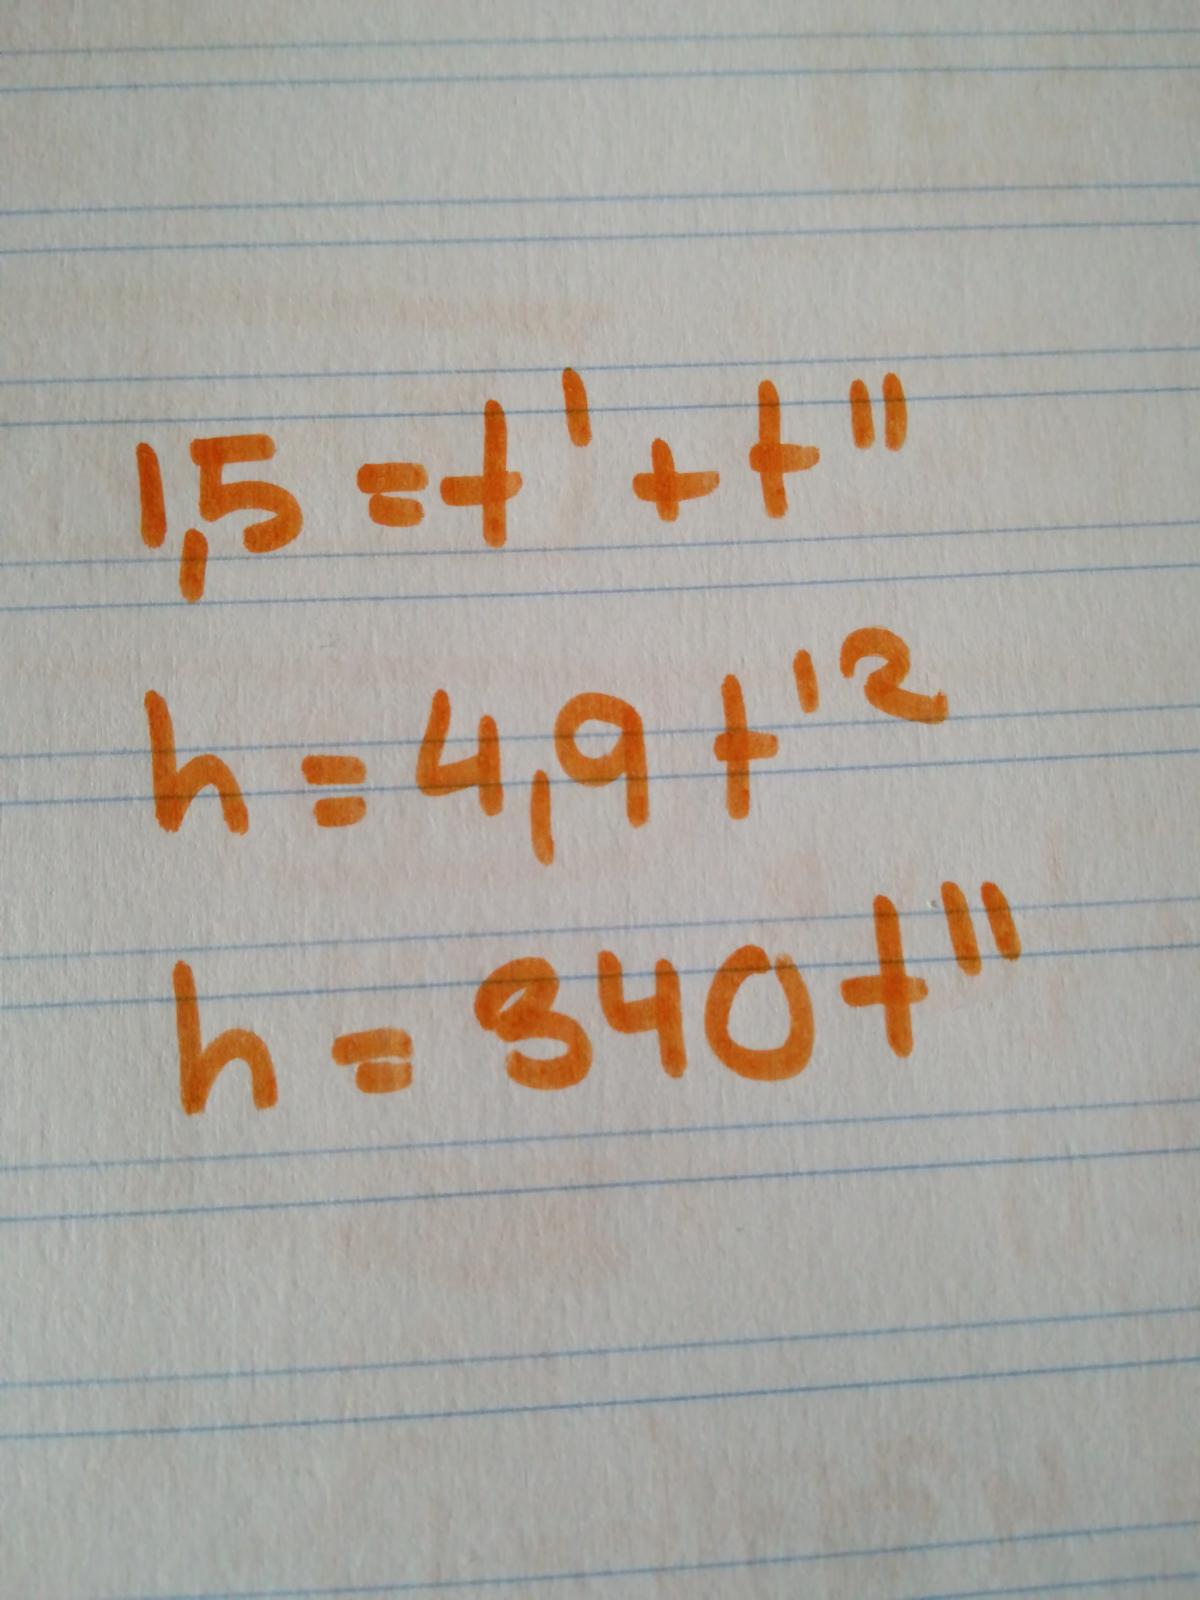 1,5 = t' + t"
h = 4,9 t'²
h = 340 t"